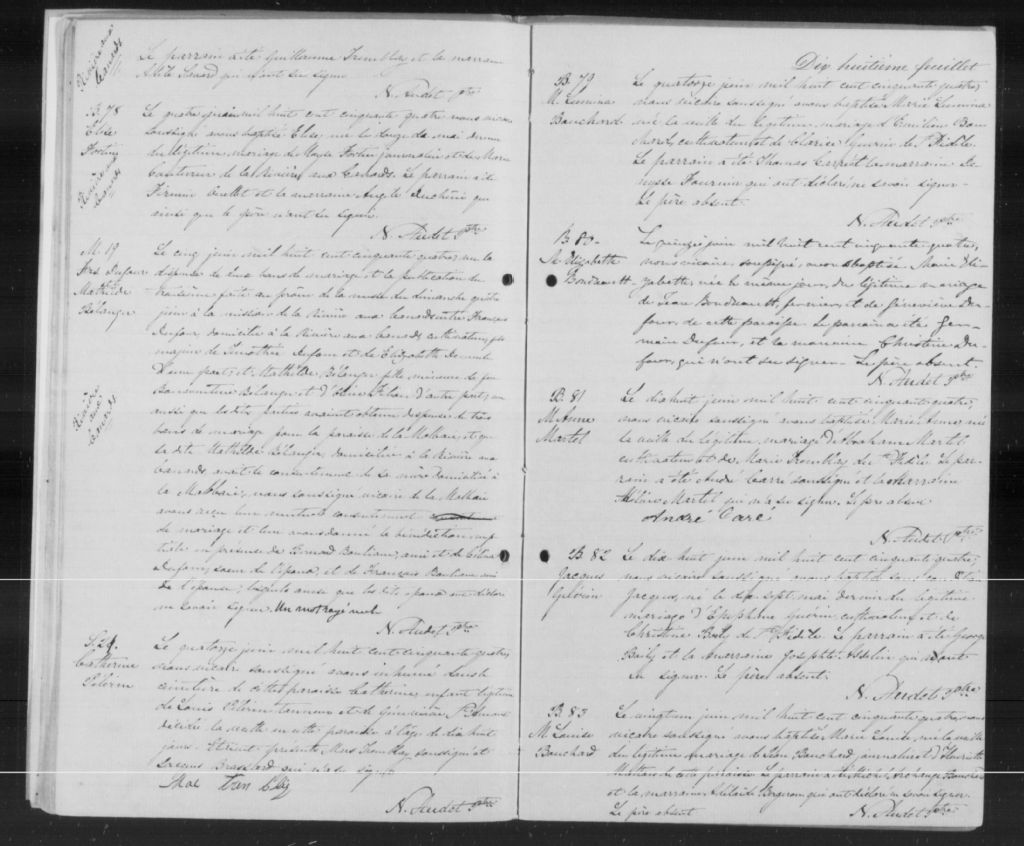 Rivière aux
Canards
Le parrain a été Guillaume Tremblay et la marraine
qui n'ont su signer
N. Audet Ptre
B. 78
Elise
Fortin
Rivière aux
Canards
Le quatre juin mil huit cent cinquante quatre nous vicaire
soussigné avons baptisé Elise, née le douze de mai dernier
du légitime mariage de Fortin journalier et de Marie
de la Rivière aux Canards. Le parrain a été
Firmin Ouellet et la marraine Angèle Duchêne qui
ainsi que le père n'ont su signer.
N. Audet Ptre
M. 19
Frs Dufour
Mathilde
Bélanger
Rivière
aux
Canards
Le cinq juin mil huit cent cinquante quatre, vu la
dispense de deux bans de mariage et la publication du
troisième faite au prône de la messe du dimanche quatre
juin à la mission de la Rivière aux Canards entre François
Dufour domicilié à la Rivière aux Canards cultivateur, fils
majeur de Timothée Dufour et de Elizabeth
d'une part; et Mathilde Bélanger fille mineure de feu
Bonaventure Bélanger et d' d'autre part; vu
aussi que les dites parties avaient obtenu dispense de trois
bans de mariage pour la paroisse de la Malbaie, et que
la dite Mathilde Bélanger, domiciliée à la Rivière aux
Canards avait le consentement de sa mère domiciliée à
la Malbaie, nous soussigné vicaire de la Malbaie
avons reçu leur mutuel consentement
de mariage et leur avons donné la bénédiction nup-
tiale en présence de Bernard Boulianne, ami et de
Dufour, soeur de l'époux, et de François Boulianne ami
de l'épouse; lesquels ainsi que les dits époux ont déclaré
ne savoir signer. Un mot rayé nul
N. Audet Ptre
S. 24.
Catherine
Pilerin
Le quatorze juin mil huit cent cinquante quatre,
nous vicaire soussigné avons inhumé dans le
cimetière de cette paroisse Catherine, enfant légitime
de Louis Pilerin tanneur et de Geneviève St Amand
décédée la veille en cette paroisse à l'âge de dix huit
jours. Etaient présents Mars Tremblay soussigné et
Brassard qui n'a su signer
N. Audet Ptre
Dix huitième feuillet
B. 79
M. Lumina
Bouchard
Le quatorze juin mil huit cent cinquante quatre,
nous vicaire soussigné avons baptisé Marie Lumina
née la veille du légitime mariage d'Emilien Bou-
chard, cultivateur et de Clarice Guérin de St Fidèle.
Le parrain a été Thomas et la marraine De-
nysse Fournier qui ont déclaré ne savoir signer.
Le père absent.
N. Audet Ptre
B. 80
M. Elizabeth
Boudreault
Le quinze juin mil huit cent cinquante quatre,
nous vicaire, soussigné, avons baptisé, Marie Eli-
zabeth, née le même jour, du légitime mariage
de Jean Boudreault, fermier, et de Geneviève Du-
four, de cette paroisse. Le parrain a été Ger-
main Dufour, et la marraine Christine Du-
four, qui n'ont su signer. Le père absent.
N. Audet Ptre
B. 81
M. Anne
Martel
Le dix huit juin mil huit cent cinquante quatre,
nous vicaire soussigné avons baptisé Marie Anne, née
la veille du légitime mariage d'Abraham Martel
cultivateur et de Marie Tremblay de St Fidèle. Le par-
rain a été André Carré soussigné et la marraine
Martel qui n'a su signer. Le père absent
André Caré
N. Audet Ptre
B. 82
Jacques
Guérin
Le dix huit juin mil huit cent cinquante quatre,
nous vicaire soussigné avons baptisé
Jacques, né le dix sept mai dernier du légitime
mariage d'Epiphane Guérin cultivateur et de
Christine Baily de St Fidèle. Le parrain a été George
Baily et la marraine Josephte Asselin qui n'ont
su signer. Le père absent.
N. Audet Ptre
B. 83
M. Louise
Bouchard
Le vingt un juin mil huit cent cinquante quatre, nous
vicaire soussigné avons baptisé Marie Louise, née la veille
du légitime mariage de Jean Bouchard journalier et d'Henriette
de cette paroisse. Le parrain a été Michel Archange Bouchard
et la marraine Adélaïde Bergeron qui ont déclaré ne savoir signer.
Le père absent
N. Audet Ptre